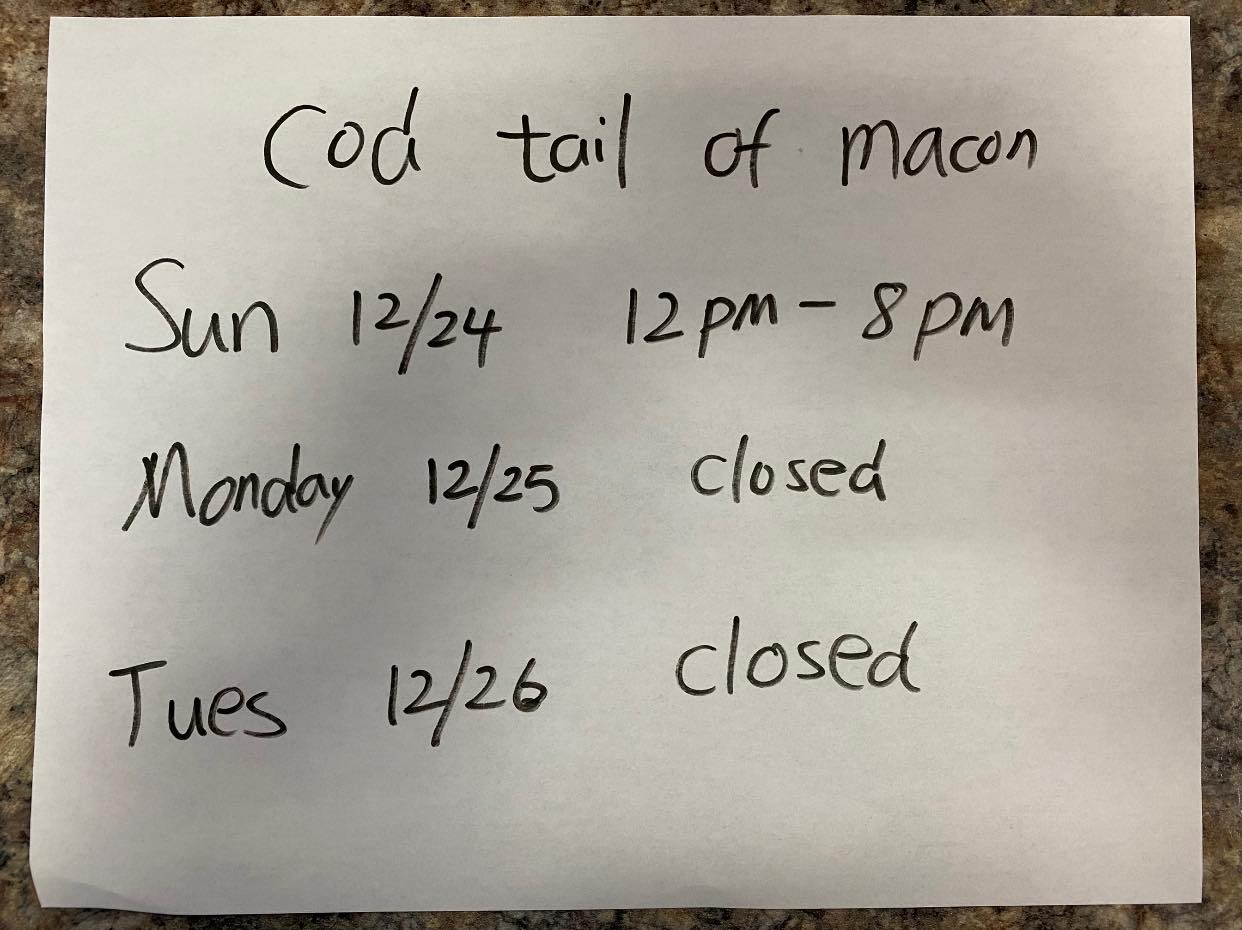 Cod tail of macon
Sun 12/24 12pm - 8pm
Monday 12/25 closed
Tues 12/26 closed